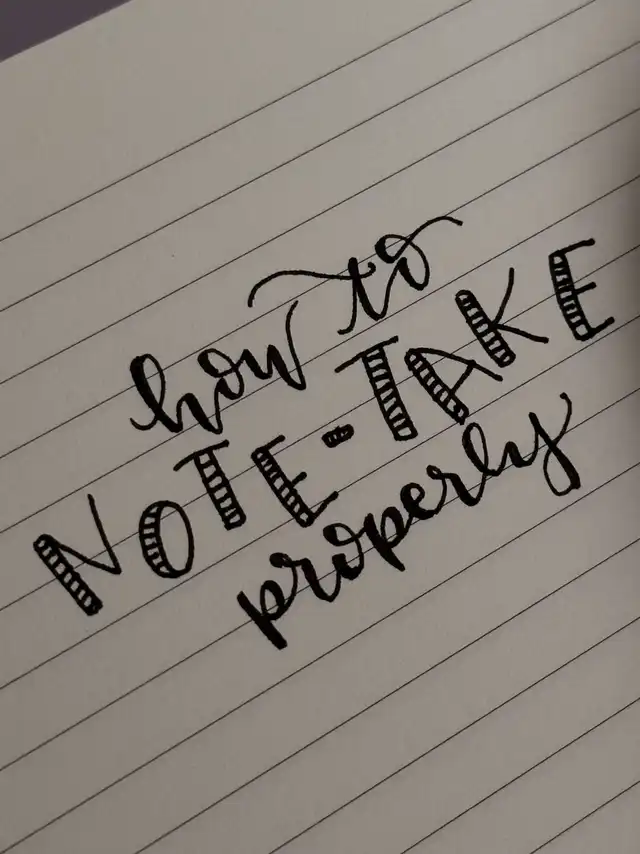 how to
NOTE-TAKE
properly